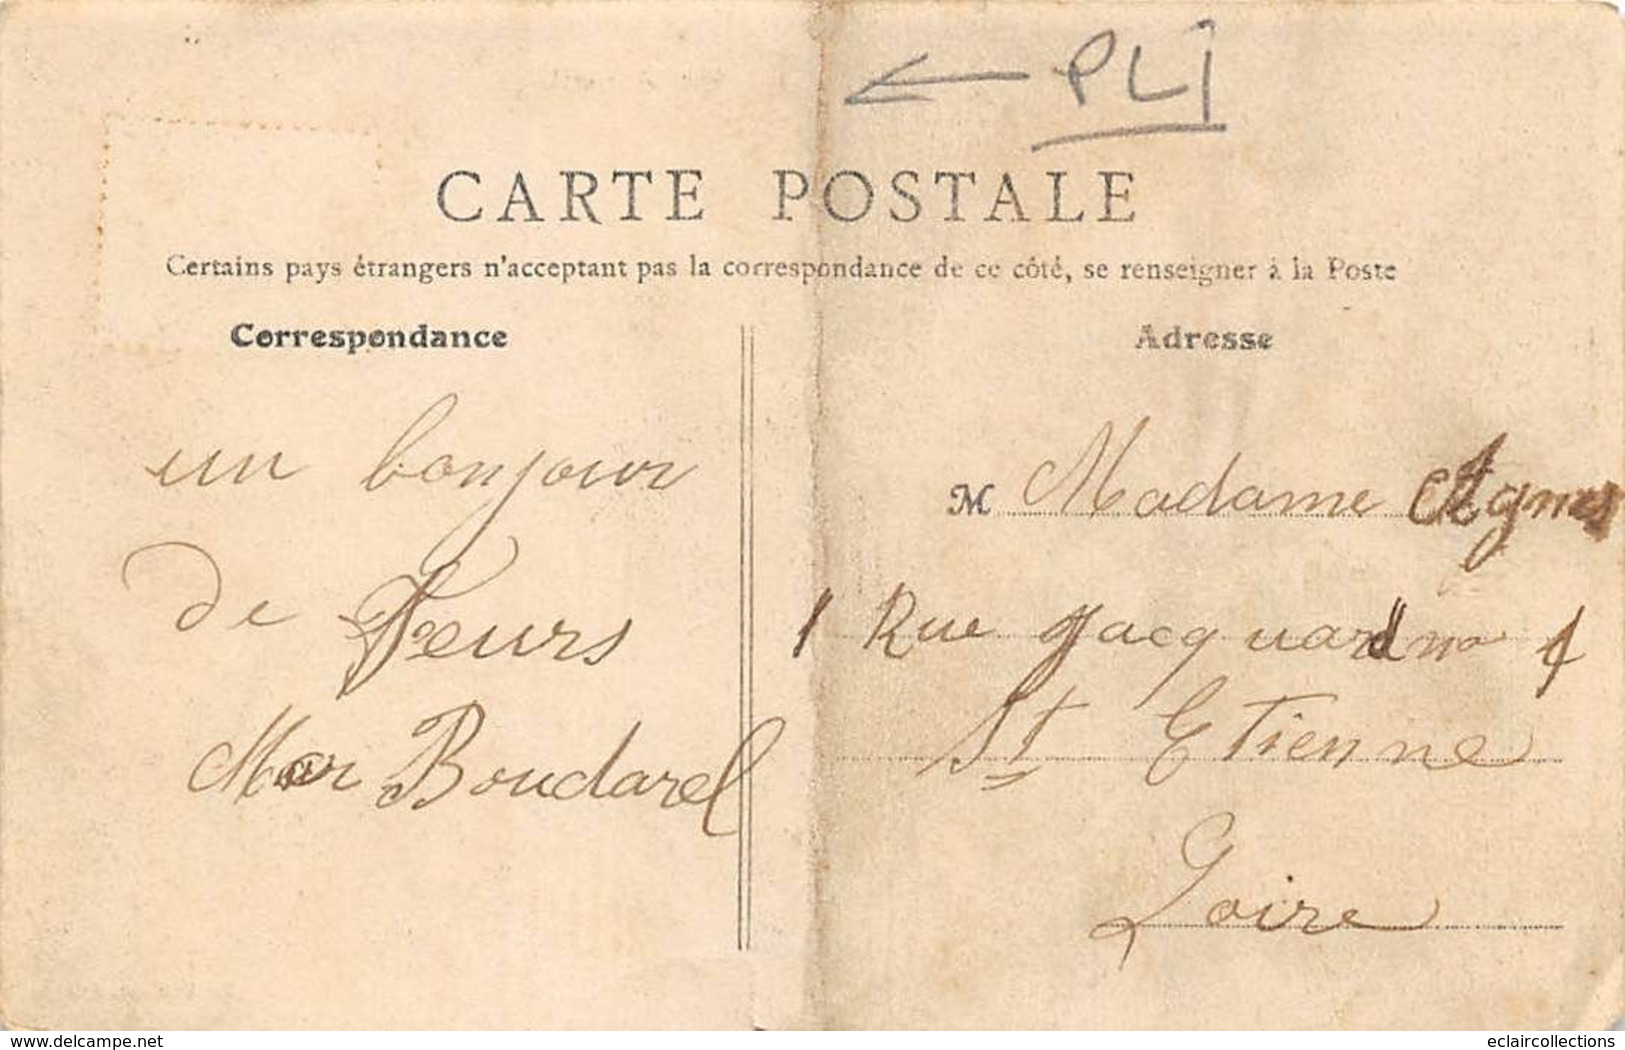 ← PLI
CARTE POSTALE
Certains pays étrangers n'acceptant pas la correspondance de ce côté, se renseigner à la Poste
Correspondance
un bonjour
de Feurs
Mar Boudarel
Adresse
M Madame Agnes
1 Rue Jacquard no 1
St Etienne
Loire
www.delcampe.net
eclaircollections